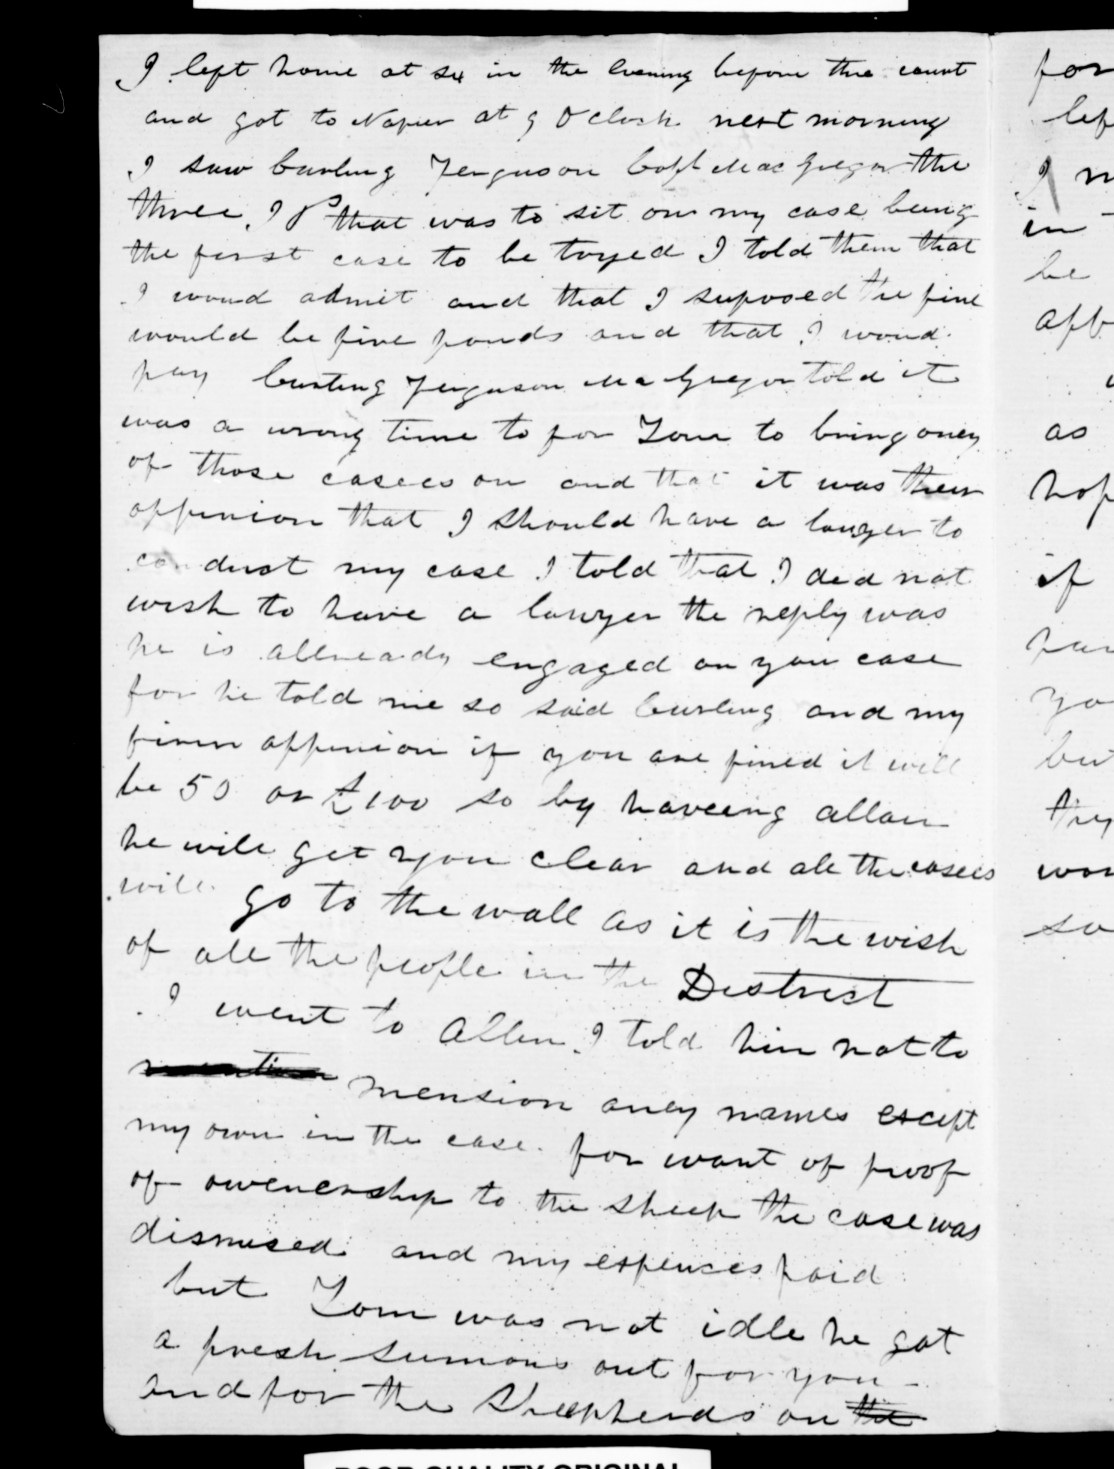 I left home at six in the Evening before the court
and got to Napier at 9 O clock next morning
I saw Curling Ferguson Capt MacGregor the
three J Ps that was to sit on my case being
the first case to be tryed I told them that
I woud admit and that I suposed the fine
would be five ponds and that I woud
pay Curling Ferguson MacGregor told it
was a wrong time to for Tom to bring oney
of those casees on and that it was their
oppinion that I should have a lawyer to
conduct my case I told that I did not
wish to have a lawyer the reply was
he is allready engaged on you case
for he told me so said Curling and my
firm oppinion if you are fined it will
be 50 or £100 so by haveing allan
he will get you clear and all the casees
will go to the wall as it is the wish
of all the people in the District
I went to Allen I told him not to
mension aney names except
my own in the case for want of proof
of owenership to the sheep the case was
dismised and my expences paid
but Tom was not idle he got
a fresh sumons out for you
and for the Sheepherds on the
for
lef
I
in
be
as
hop
if
yo
but
try
so
POOR QUALITY ORIGINAL